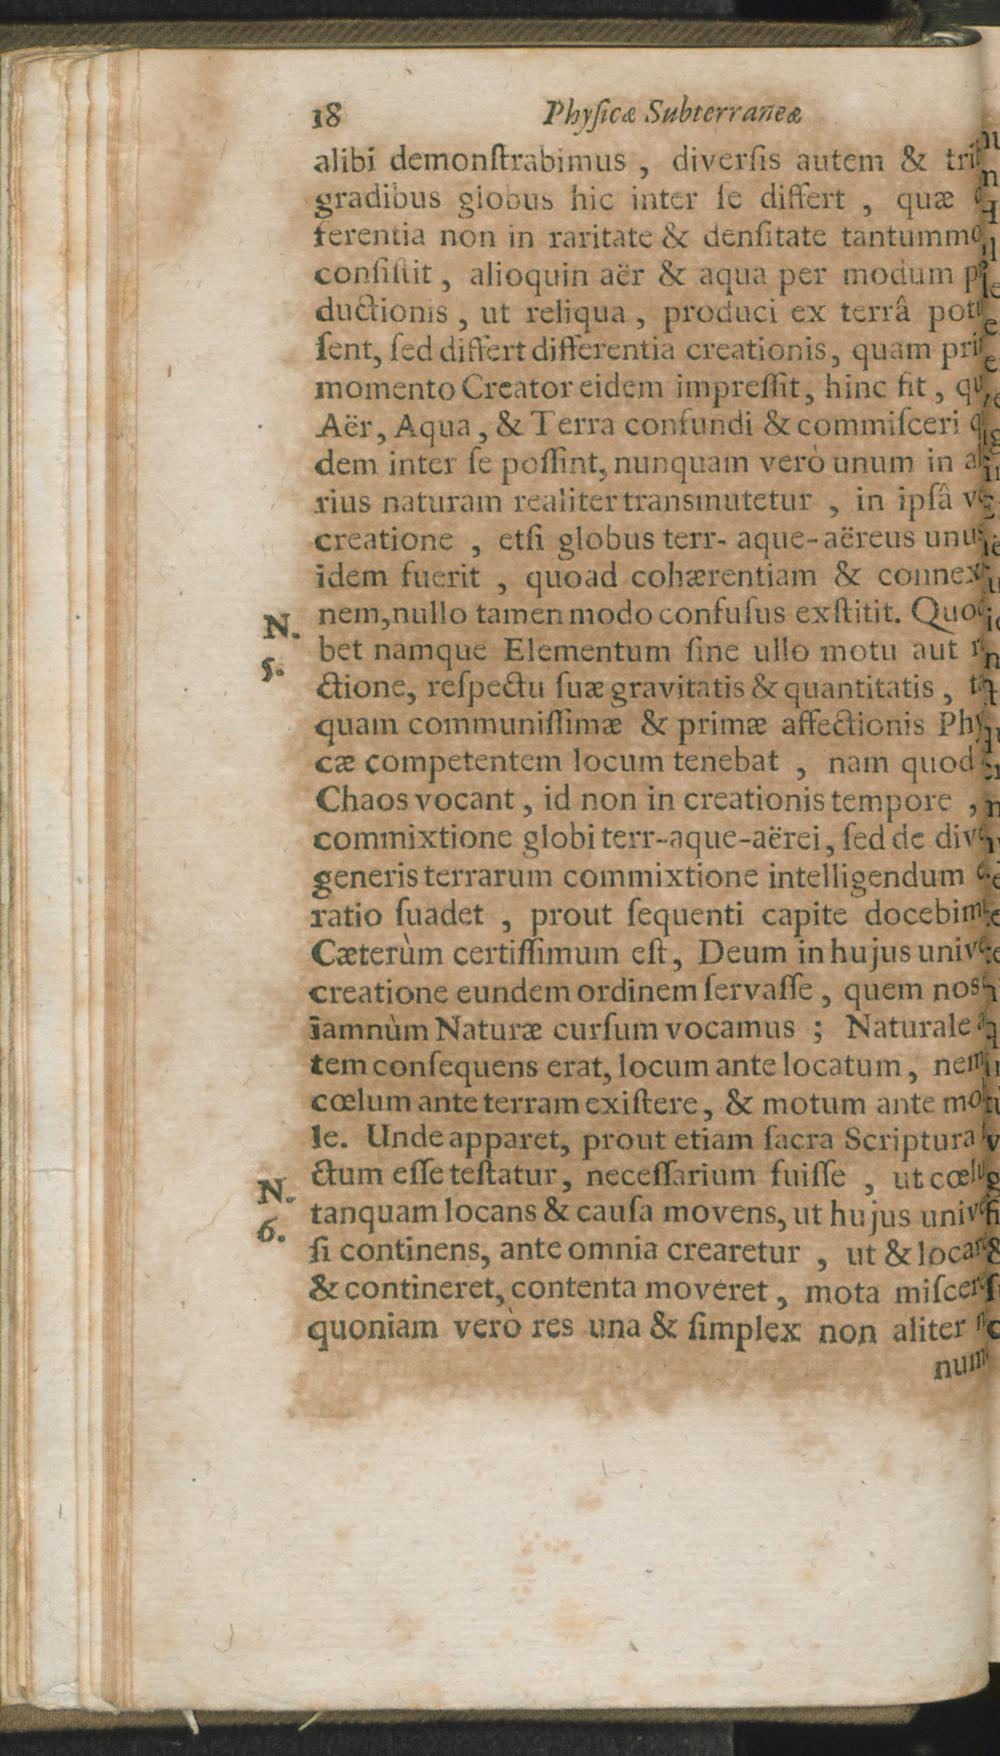 18 Phyſicæ Subterraneæ
alibi demonſtrabimus , diverſis autem &
gradibus globus hic inter ſe differt , quæ
ferentia non in raritate & denſitate
conſiſtit , alioquin aër & aqua per modum
ductionis , ut reliqua , produci ex terrâ
ſent, ſed differt differentia creationis, quam
momento Creator eidem impreſſit, hinc fit ,
Aër, Aqua, & Terra confundi & commiſceri
dem inter ſe poſſint, nunquam verò unum in
rius naturam realiter transmutetur , in ipſâ
creatione , etſi globus terr- aque-aëreus
idem fuerit , quoad cohærentiam &
N. nem,nullo tamen modo confuſus exſtitit.
5. bet namque Elementum ſine ullo motu aut
ctione, reſpectu ſuæ gravitatis & quantitatis ,
quam communiſſimæ & primæ affectionis
cæ competentem locum tenebat , nam quod
Chaos vocant , id non in creationis tempore ,
commixtione globi terr-aque-aërei, ſed de
generis terrarum commixtione intelligendum
ratio ſuadet , prout ſequenti capite
Cæterùm certiſſimum eſt, Deum in hujus
creatione eundem ordinem ſervaſſe , quem nos
iamnùm Naturæ curſum vocamus ; Naturale
tem conſequens erat, locum ante locatum,
cœlum ante terram exiſtere, & motum ante
le. Unde apparet, prout etiam ſacra Scriptura
N. ctum eſſe teſtatur, neceſſarium fuiſſe , ut
6. tanquam locans & cauſa movens, ut hujus
ſi continens, ante omnia crearetur , ut &
& contineret, contenta moveret , mota
quoniam verò res una & ſimplex non aliter
num